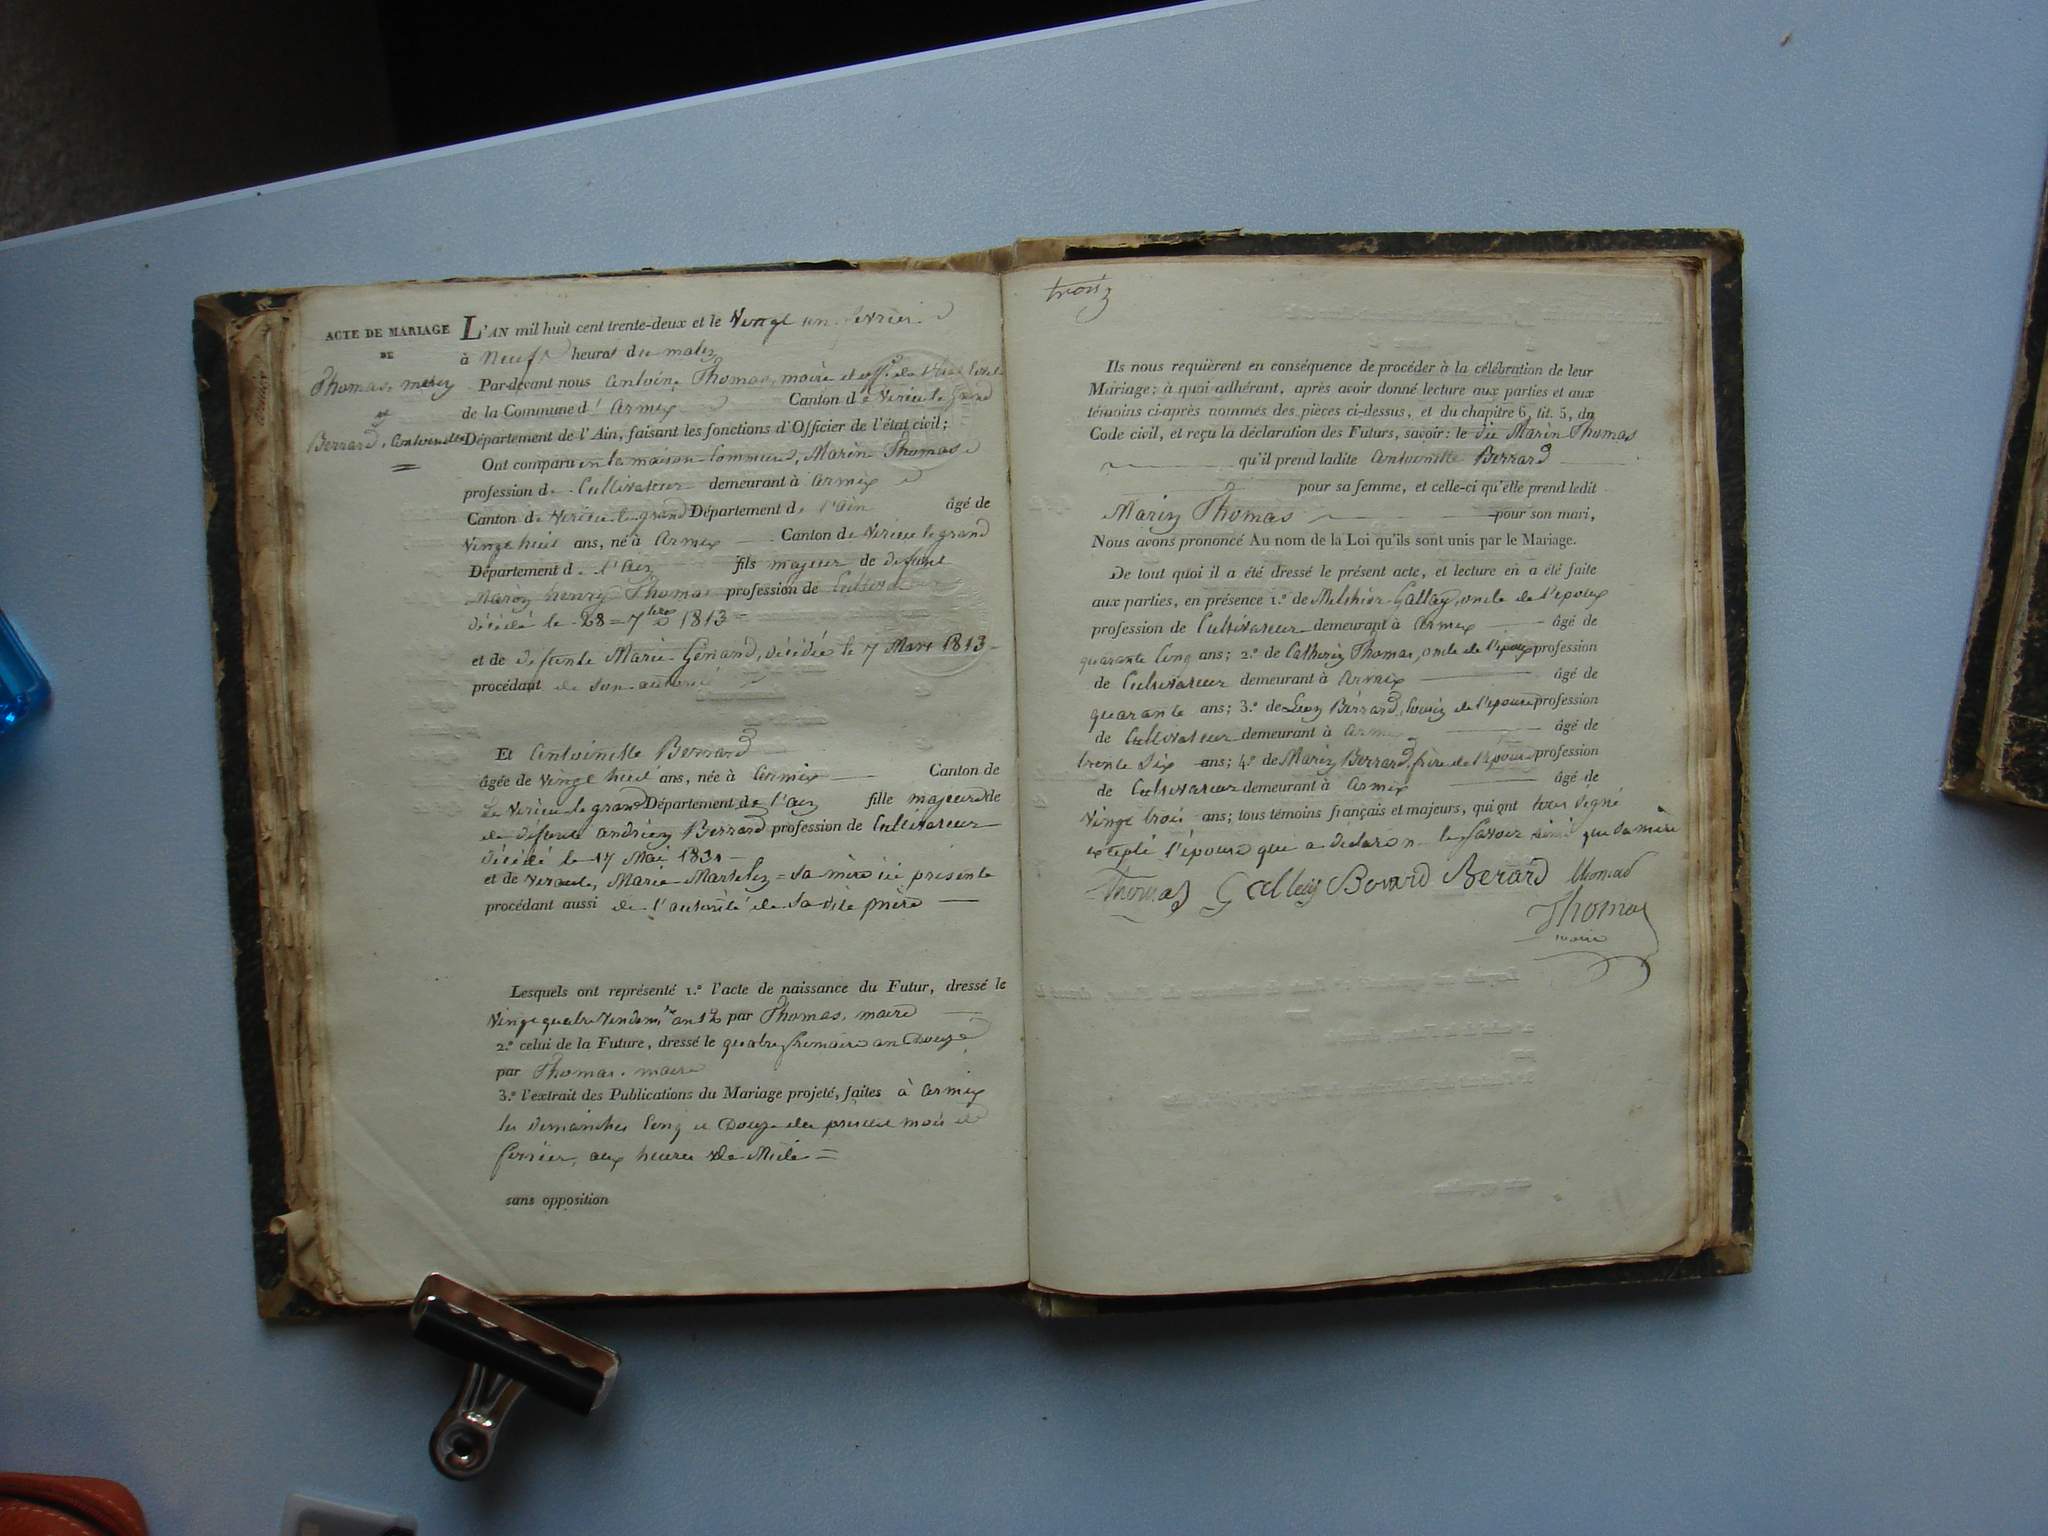 ACTE DE MARIAGE
DE
Thomas, marin
et
Berrard, Antoinette
L'AN mil huit cent trente-deux et le Vingt un fevrier
à Neuf heures du matin
Par-devant nous Antoine Thomas, maire et off. de l'état civil
de la Commune d' Armix Canton de Virieu le Grand
Département de l'Ain, faisant les fonctions d'Officier de l'état civil;
Ont comparu en la maison Commune, Marin Thomas
profession de Cultivateur demeurant à Armix
Canton de Virieu le grand Département de l'ain âgé de
Vingt huit ans, né à Armix Canton de Virieu le grand
Département de l'ain fils majeur de defunt
henry Thomas profession de Cultivateur
décédé le 28 = 7bre 1813
et de defunte Marie Génand, décédée le 7 Mars 1813
procédant de son autorité
Et Antoinette Berrard
âgée de Vingt huit ans, née à Armix Canton de
de Virieu le grand Département de l'ain fille majeure de
de defunt andrien Berrard profession de Cultivateur
décédé le 17 Mai 1831
et de vivante, Marie Martelin = sa mère ici présente
procédant aussi de l'autorité de sa dite mère
Lesquels ont représenté 1.º l'acte de naissance du Futur, dressé le
Vingt quatre Vendem.re an 12 par Thomas, maire
2.º celui de la Future, dressé le quatre frimaire an Douze
par Thomas, maire
3.º l'extrait des Publications du Mariage projeté, faites à Armix
les dimanches Cinq et Douze du présent mois de
fevrier, aux heures de Midi =
sans opposition
trois
Ils nous requièrent en conséquence de procéder à la célébration de leur
Mariage; à quoi adhérant, après avoir donné lecture aux parties et aux
témoins ci-après nommés des pièces ci-dessus, et du chapitre 6, tit. 5, du
Code civil, et reçu la déclaration des Futurs, savoir: le dit Marin Thomas
qu'il prend ladite Antoinette Berrard
pour sa femme, et celle-ci qu'elle prend ledit
Marin Thomas pour son mari,
Nous avons prononcé Au nom de la Loi qu'ils sont unis par le Mariage.
De tout quoi il a été dressé le présent acte, et lecture en a été faite
aux parties, en présence 1.º de Melchior Gallay, oncle de l'epoux
profession de Cultivateur demeurant à Armix âgé de
quarante Cinq ans; 2.º de Catherin Thomas, oncle de l'epoux profession
de Cultivateur demeurant à Armix âgé de
quarante ans; 3.º de Leon Berrard, Cousin de l'epouse profession
de Cultivateur demeurant à Armix âgé de
trente Six ans; 4.º de Marin Berrard, frère de l'epouse profession
de Cultivateur demeurant à Armix âgé de
Vingt trois ans; tous témoins français et majeurs, qui ont tous signé
excepté l'épouse qui a déclaré n le savoir ainsi que sa mère
Thomas Gallay Bovard Berard thomas
Thomas
maire